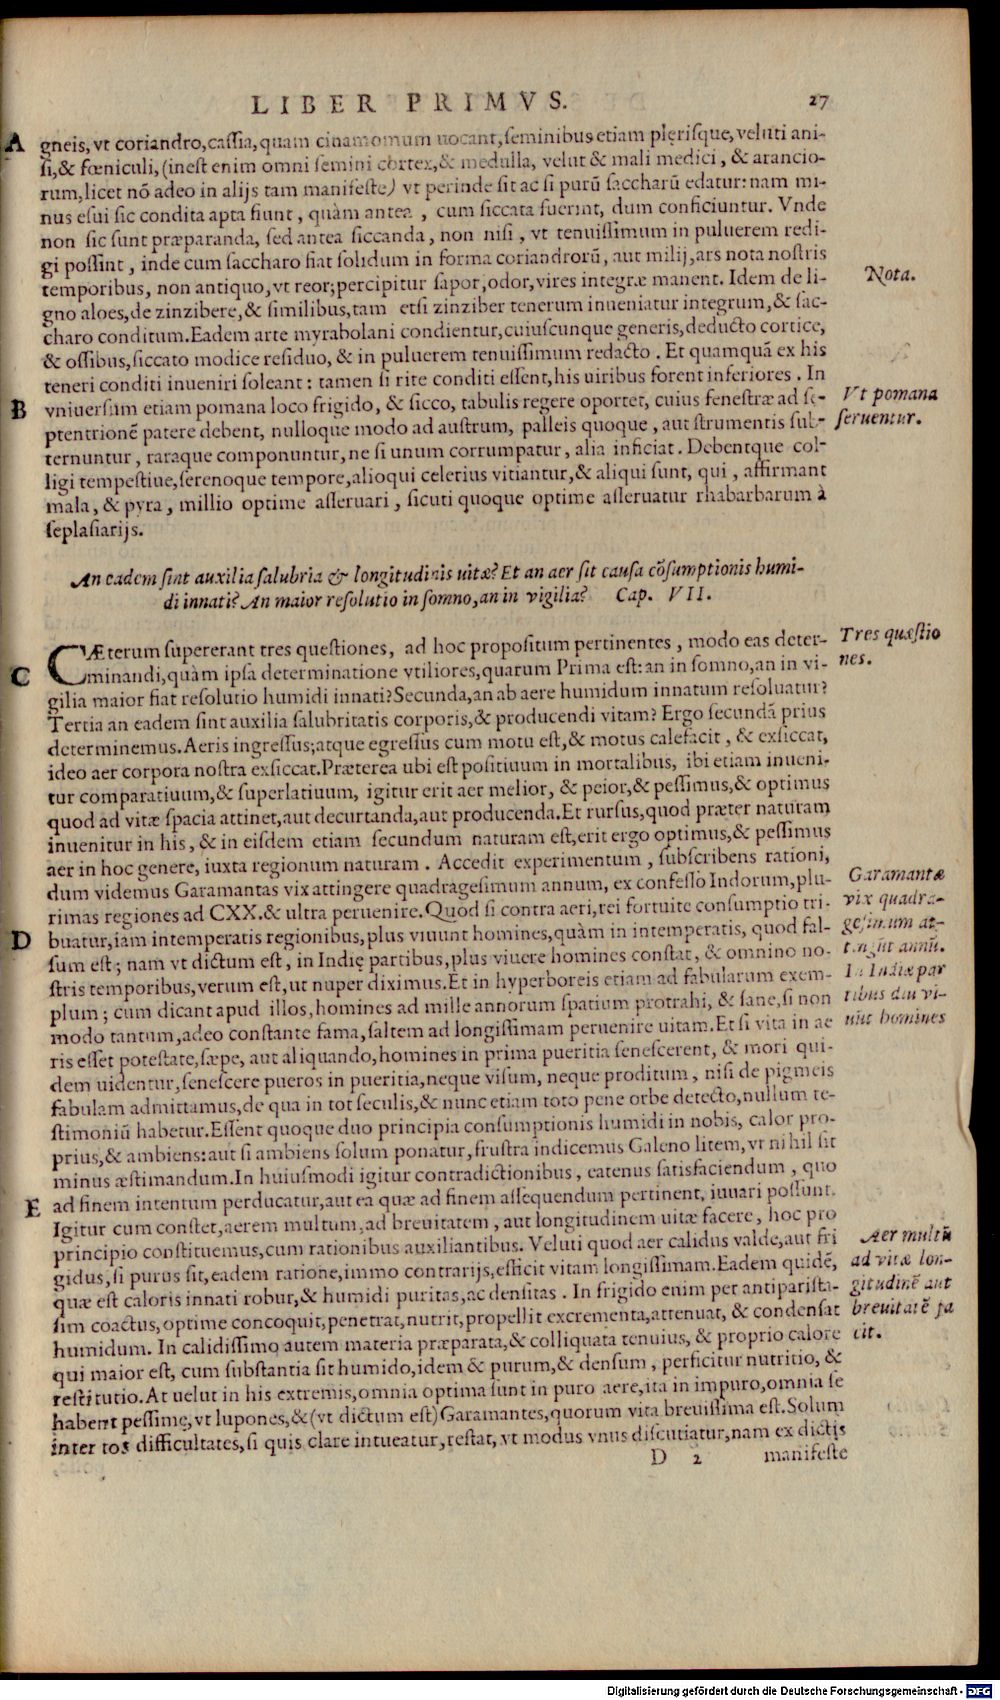 LIBER PRIMVS. 27
A gneis, vt coriandro, cassia, quam cinamomum uocant, seminibus etiam plęrisque, veluti ani-
si, & fœniculi, (inest enim omni semini cortex, & medulla, velut & mali medici, & arancio-
rum, licet nõ adeo in alijs tam manifeste) vt perinde sit ac si purũ saccharũ edatur: nam mi-
nus esui sic condita apta fiunt, quàm antea, cum siccata fuerint, dum conficiuntur. Vnde
non sic sunt præparanda, sed antea siccanda, non nisi, vt tenuissimum in puluerem redi-
gi possint, inde cum saccharo fiat solidum in forma coriandrorũ, aut milij, ars nota nostris
temporibus, non antiquo, vt reor; percipitur sapor, odor, vires integræ manent. Idem de li-
Nota.
gno aloes, de zinzibere, & similibus, tam etsi zinziber tenerum inueniatur integrum, & sac-
charo conditum. Eadem arte myrabolani condientur, cuiuscunque generis, deducto cortice,
& ossibus, siccato modice residuo, & in puluerem tenuissimum redacto. Et quamquã ex his
teneri conditi inueniri soleant: tamen si rite conditi essent, his uiribus forent inferiores. In
Vt pomana
B vniuersum etiam pomana loco frigido, & sicco, tabulis regere oportet, cuius fenestræ ad se-
seruentur.
ptentrionẽ patere debent, nulloque modo ad austrum, palleis quoque, aut strumentis sub-
ternuntur, raraque componuntur, ne si unum corrumpatur, alia inficiat. Debentque col-
ligi tempestiue, serenoque tempore, alioqui celerius vitiantur, & aliqui sunt, qui, affirmant
mala, & pyra, millio optime asseruari, sicuti quoque optime asseruatur rhabarbarum à
seplasiarijs.
An eadem sint auxilia salubria & longitudinis uitæ? Et an aer sit causa cõsumptionis humi-
di innati? An maior resolutio in somno, an in vigilia? Cap. VII.
CÆterum supererant tres questiones, ad hoc propositum pertinentes, modo eas deter-
Tres quæstio
C minandi, quàm ipsa determinatione vtiliores, quarum Prima est: an in somno, an in vi-
nes.
gilia maior fiat resolutio humidi innati? Secunda, an ab aere humidum innatum resoluatur?
Tertia an eadem sint auxilia salubritatis corporis, & producendi vitam? Ergo secundã prius
determinemus. Aeris ingressus; atque egressus cum motu est, & motus calefacit, & exsiccat,
ideo aer corpora nostra exsiccat. Præterea ubi est positiuum in mortalibus, ibi etiam inueni-
tur comparatiuum, & superlatiuum, igitur erit aer melior, & peior, & pessimus, & optimus
quod ad vitæ spacia attinet, aut decurtanda, aut producenda. Et rursus, quod præter naturam
inuenitur in his, & in eisdem etiam secundum naturam est, erit ergo optimus, & pessimus
aer in hoc genere, iuxta regionum naturam. Accedit experimentum, subscribens rationi,
dum videmus Garamantas vix attingere quadragesimum annum, ex confesso Indorum, plu-
Garamantæ
vix quadra-
rimas regiones ad CXX. & ultra peruenire. Quod si contra aeri, rei fortuite consumptio tri-
gesimum at-
D buatur, iam intemperatis regionibus, plus viuunt homines, quàm in intemperatis, quod fal-
tingũt annũ.
sum est; nam vt dictum est, in Indię partibus, plus viuere homines constat, & omnino no-
In Indiæ par
stris temporibus, verum est, ut nuper diximus. Et in hyperboreis etiam ad fabularum exem-
tibus diu vi-
plum; cum dicant apud illos, homines ad mille annorum spatium protrahi, & sane, si non
uũt homines
modo tantum, adeo constante fama, saltem ad longissimam peruenire uitam. Et si vita in ae
ris esset potestate, sæpe, aut aliquando, homines in prima pueritia senescerent, & mori qui-
dem uidentur, senescere pueros in pueritia, neque visum, neque proditum, nisi de pigmeis
fabulam admittamus, de qua in tot seculis, & nunc etiam toto pene orbe detecto, nullum te-
stimoniũ habetur. Essent quoque duo principia consumptionis humidi in nobis, calor pro-
prius, & ambiens: aut si ambiens solum ponatur, frustra indicemus Galeno litem, vt nihil sit
minus æstimandum. In huiusmodi igitur contradictionibus, eatenus satisfaciendum, quo
E ad finem intentum perducatur, aut ea quæ ad finem assequendum pertinent, iuuari possunt.
Igitur cum constet, aerem multum, ad breuitatem, aut longitudinem uitæ facere, hoc pro
principio constituemus, cum rationibus auxiliantibus. Veluti quod aer calidus valde, aut fri
Aer multũ
gidus, si purus sit, eadem ratione, immo contrarijs, efficit vitam longissimam. Eadem quidẽ,
ad vitæ lon-
quæ est caloris innati robur, & humidi puritas, ac densitas. In frigido enim per antiparista-
gitudinẽ aut
sim coactus, optime concoquit, penetrat, nutrit, propellit excrementa, attenuat, & condensat
breuitatẽ fa
humidum. In calidissimo autem materia præparata, & colliquata tenuius, & proprio calore
cit.
qui maior est, cum substantia sit humido, idem & purum, & densum, perficitur nutritio, &
restitutio. At uelut in his extremis, omnia optima sunt in puro aere, ita in impuro, omnia se
habent pessime, vt lupones, & (vt dictum est) Garamantes, quorum vita breuissima est. Solum
inter tos difficultates, si quis clare intueatur, restat, vt modus vnus discutiatur, nam ex dictis
D 2 manifeste
Digitalisierung gefördert durch die Deutsche Forschungsgemeinschaft - DFG